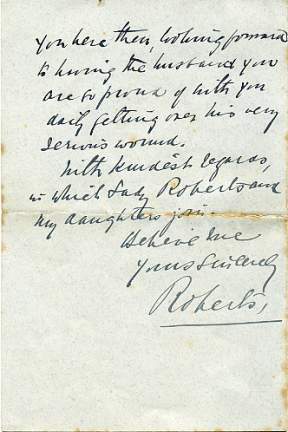 you here then, looking forward
to having the husband you
are so proud of with you
daily getting over his very
serious wound.
With kindest regards,
in which Lady Roberts and
my daughters join.
Believe me
Yours sincerely
Roberts,